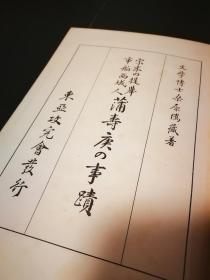 文學博士桑原隲藏著
宋末の提擧市舶西域人
蒲壽庚の事蹟
東亞攻究會發行